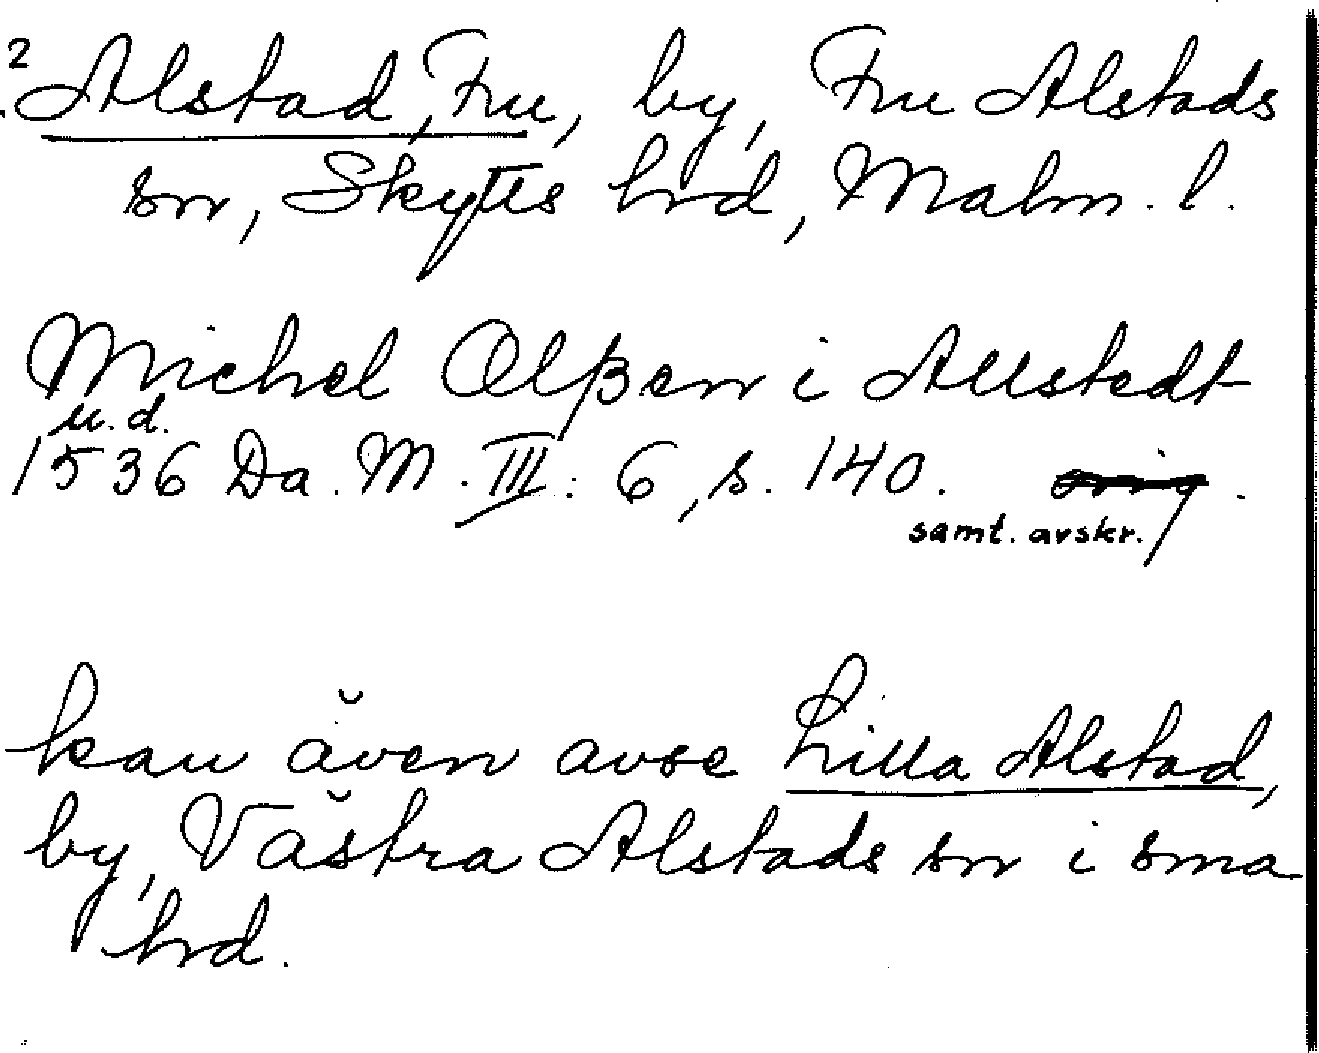 2 Alstad, Fru, by, Fru Alstads
sn, Skytts hrd, Malm. l.
Michel Olßen i Allstedt
u.d.
1536 Da. M. III: 6, s. 140. orig.
samt. avskr.
kan även avse Lilla Alstad,
by, Västra Alstads sn i sma
hrd.